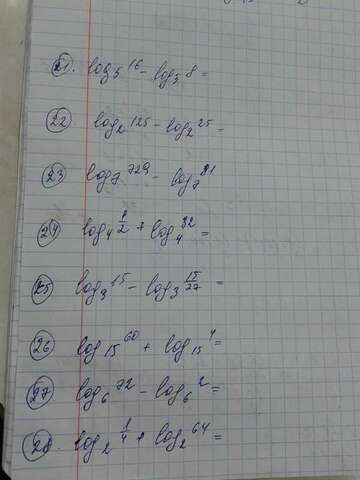 21. log₅16 - log₅8 =
22 log₂125 - log₂25 =
23 log₇729 - log₇81
24 log₄1/2 + log₄32 =
25 log₃15 - log₃15/27 =
26 log₁₅60 + log₁₅4 =
27 log₆72 - log₆2 =
28. log₂1/4 + log₂64 =